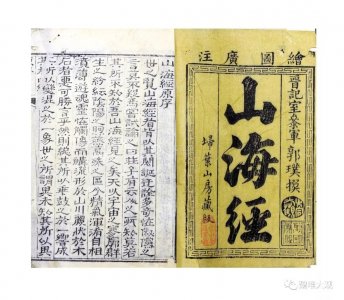 繪圖廣注
晉記室參軍郭璞撰
山海經
掃葉山房藏版
山海經原序
世之覽山海經者皆以其閎誕迂誇多奇怪俶儻之
言莫不疑焉嘗試論之曰莊生有云人之所知莫若
其所不知吾於山海經見之矣夫以宇宙之寥廓群
生之紛紜陰陽之煦蒸萬殊之區分精氣渾淆自相
濆薄遊魂靈怪觸像而構流形於山川麗狀於木
石者惡可勝言乎然則總其所以乖鼓之於一響成
其所以變混之於一象世之所謂異未知其所以異